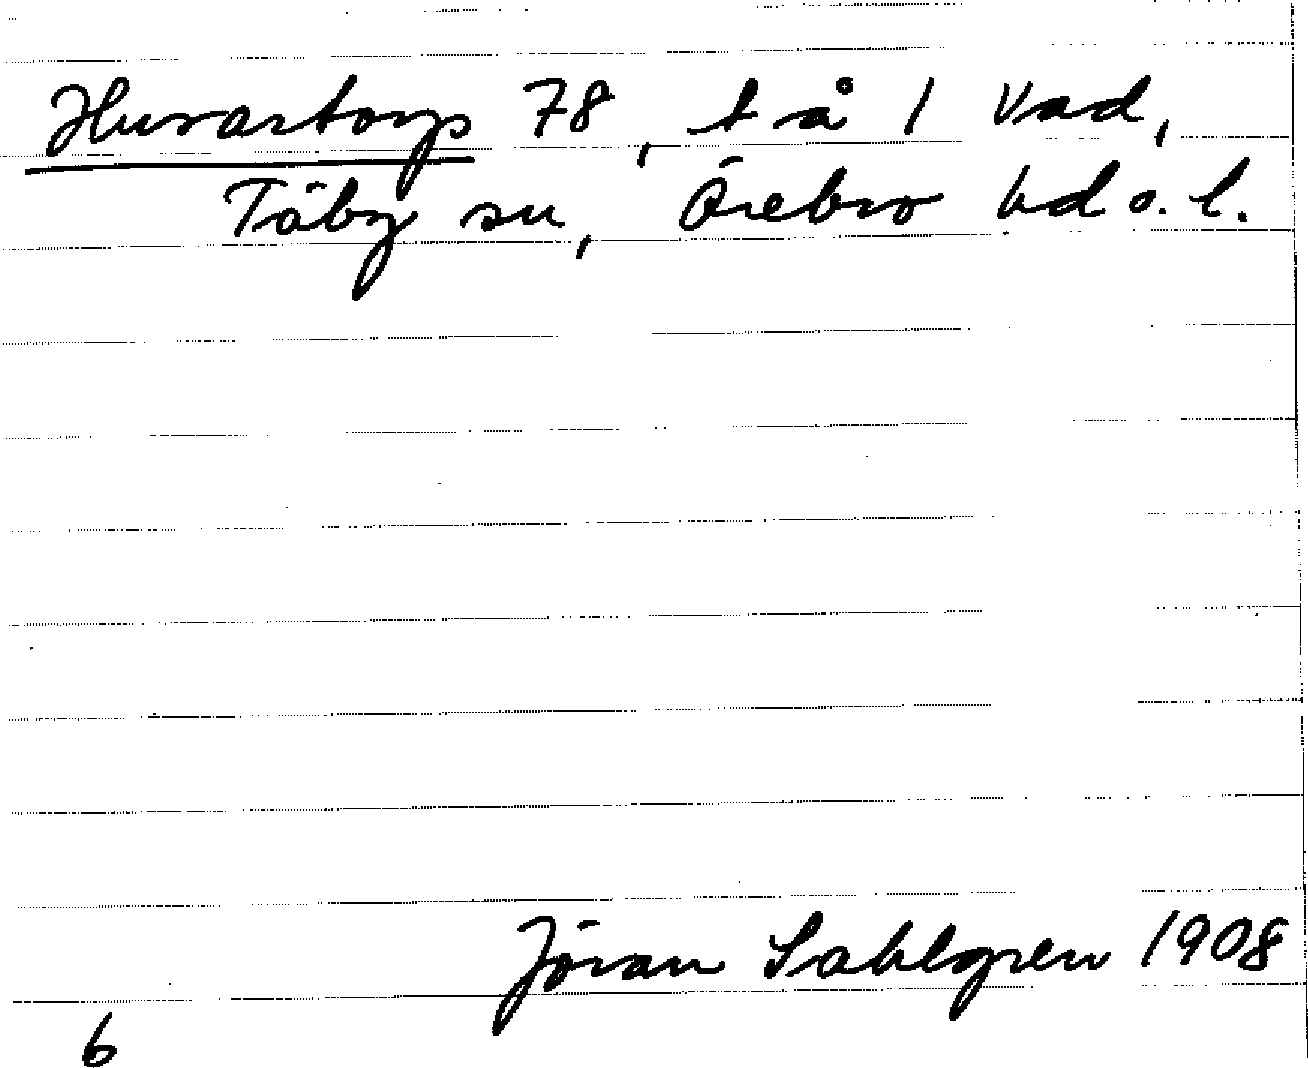 Hurvartorp 78, t å 1 Vad,
Täby sn, Örebro hd o. l.
Jöran Sahlgren 1908
6